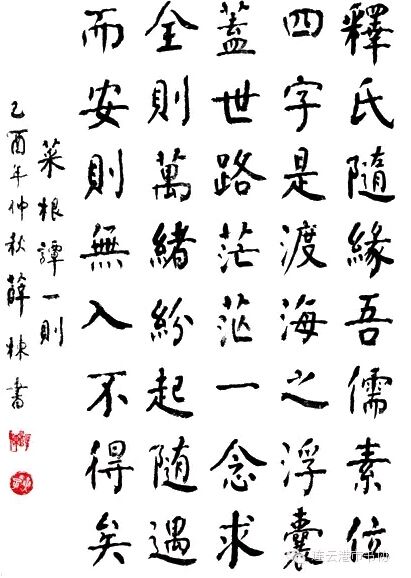 釋氏隨緣吾儒素位
四字是渡海之浮囊
蓋世路茫茫一念求
全則萬緒紛起随遇
而安則無入不得矣
菜根譚一則
乙酉年仲秋薛棟書
连云港市书协